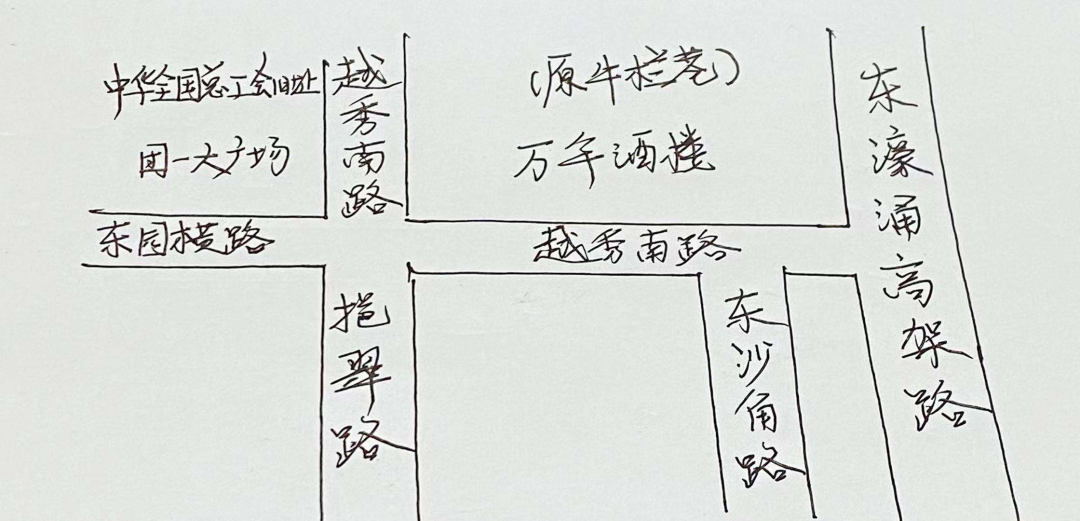 中华全国总工会旧址
团一大广场
越秀南路
(原牛栏巷)
万年酒楼
东濠涌高架路
东园横路
越秀南路
挹翠路
东沙角路